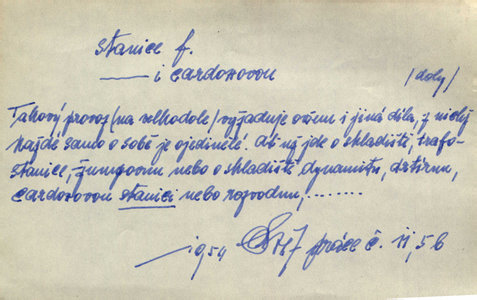 stanice f.
—— i cardoxovou
/doly/
Takový provoz (na velkodole) vyžaduje ovšem i jiná díla, z nichž
každé samo o sobě je ojedinělé. Ať už jde o skladiště, trafo-
stanice, žumpovnu nebo o skladiště dynamitu, drtírnu,
cardoxovou stanici nebo rozvodnu, .......
1954 práce č. 11, 56